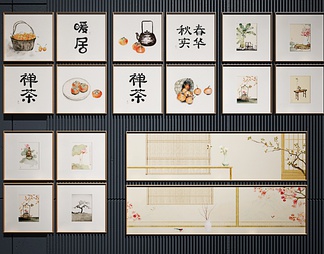 暖居
春华
秋实
禅茶
禅茶